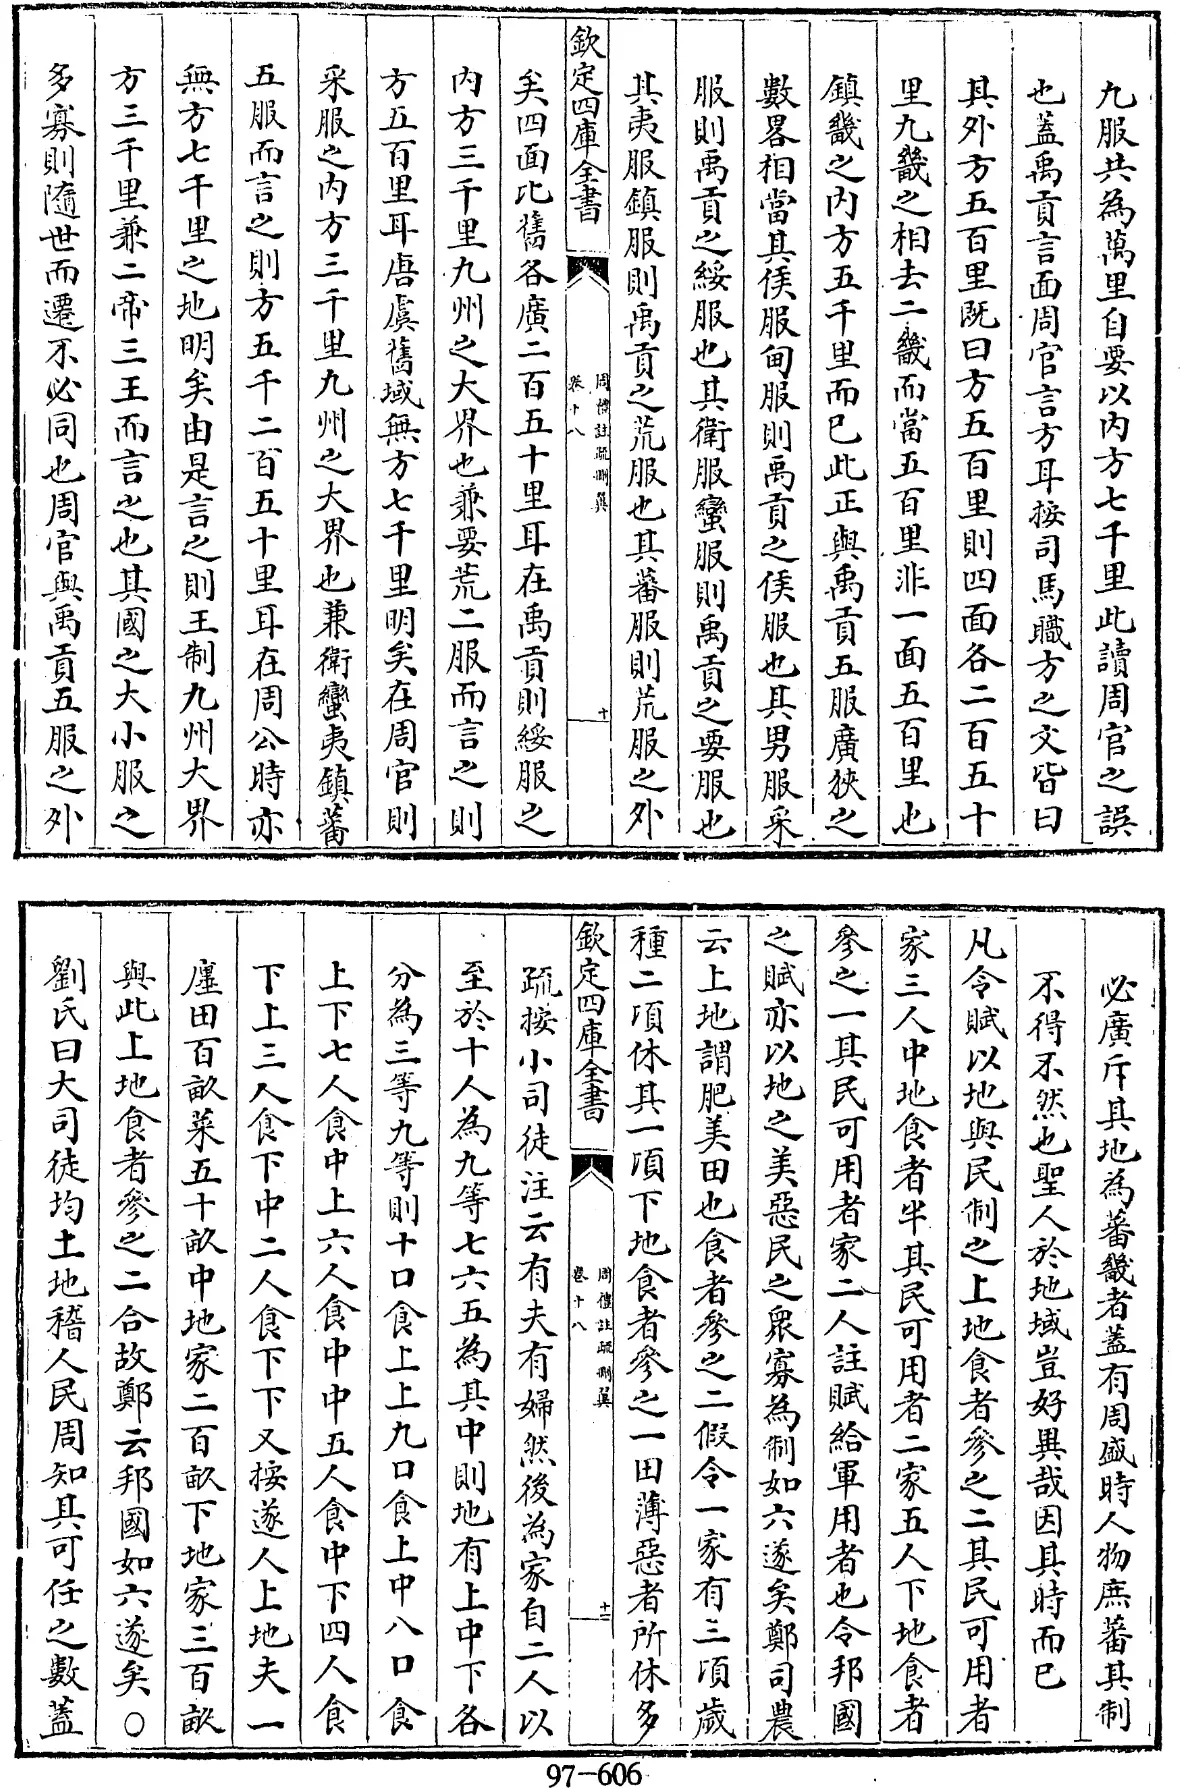 九服共為萬里自要以内方七千里此讀周官之誤
也蓋禹貢言面周官言方耳按司馬職方之文皆曰
其外方五百里既曰方五百里則四面各二百五十
里九畿之相去二畿而當五百里非一面五百里也
鎮畿之内方五千里而已此正與禹貢五服廣狹之
數畧相當其侯服甸服則禹貢之侯服也其男服采
服則禹貢之綏服也其衛服蠻服則禹貢之要服也
其夷服鎮服則禹貢之荒服也其蕃服則荒服之外
欽定四庫全書
周禮註疏刪翼
卷十八
十
矣四面比舊各廣二百五十里耳在禹貢則綏服之
内方三千里九州之大界也兼要荒二服而言之則
方五百里耳唐虞舊域無方七千里明矣在周官則
采服之内方三千里九州之大界也兼衛蠻夷鎮蕃
五服而言之則方五千二百五十里耳在周公時亦
無方七千里之地明矣由是言之則王制九州大界
方三千里兼二帝三王而言之也其國之大小服之
多寡則隨世而遷不必同也周官與禹貢五服之外
必廣斥其地為蕃畿者蓋有周盛時人物庶蕃其制
不得不然也聖人於地域豈好異哉因其時而已
凡令賦以地與民制之上地食者參之二其民可用者
家三人中地食者半其民可用者二家五人下地食者
參之一其民可用者家二人註賦給軍用者也令邦國
之賦亦以地之美惡民之衆寡為制如六遂矣鄭司農
云上地謂肥美田也食者參之二假令一家有三頃歲
種二頃休其一頃下地食者參之一田薄惡者所休多
欽定四庫全書
周禮註疏刪翼
卷十八
十一
疏按小司徒注云有夫有婦然後為家自二人以
至於十人為九等七六五為其中則地有上中下各
分為三等九等則十口食上上九口食上中八口食
上下七人食中上六人食中中五人食中下四人食
下上三人食下中二人食下下又按遂人上地夫一
廛田百畝萊五十畝中地家二百畝下地家三百畝
與此上地食者參之二合故鄭云邦國如六遂矣○
劉氏曰大司徒均土地稽人民周知其可任之數蓋
97-606